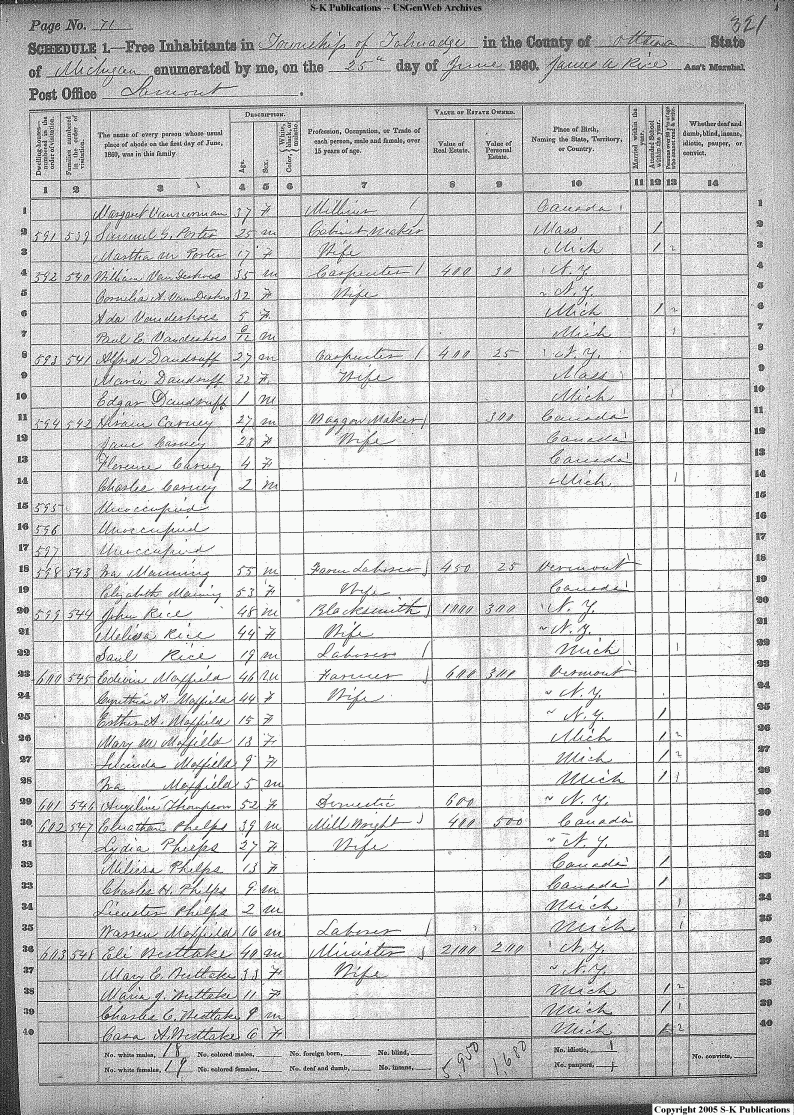 S-K Publications -- USGenWeb Archives
Page No. 71
321
SCHEDULE 1.—Free Inhabitants in Township of Talmadge in the County of Ottawa State
of Michigan enumerated by me, on the 25th day of June 1860. James A Rice Ass't Marshal.
Post Office Lamont.
Dwelling-houses—numbered in the order of visitation.
Families numbered in the order of visitation.
The name of every person whose usual place of abode on the first day of June, 1860, was in this family
DESCRIPTION.
Age.
Sex.
Color, White, black, or mulatto.
Profession, Occupation, or Trade of each person, male and female, over 15 years of age.
VALUE OF ESTATE OWNED.
Value of Real Estate.
Value of Personal Estate.
Place of Birth, Naming the State, Territory, or Country.
Married within the year.
Attended School within the year.
Whether deaf and dumb, blind, insane, idiotic, pauper, or convict.
1 2 3 4 5 6 7 8 9 10 11 12 13 14
1 Margaret 37 F Milliner / Canada 1
2 591 539 Samuel G. Porter 25 m Cabinet Maker Mass 1 2
3 Martha M Porter 17 F Wife Mich 1 2 3
4 592 540 William 35 m Carpenter / 400 30 N.Y. 4
5 Cornelia A. 32 F Wife N.Y. 5
6 Ada Vandeshoes 5 F Mich 1 2 6
7 Paul E. Vandeshoes m Mich 1 7
8 593 541 Alfred Dandruff 27 m Carpenter / 400 25 N.Y. 8
9 Maria Dandruff 22 F Wife Mass 9
10 Edgar Dandruff 1 m Mich 1 10
11 594 542 Hiram Carney 27 m Waggon Maker / 300 Canada 11
12 Jane Carney 23 F Wife Canada 12
13 Florence Carney 4 F Canada 13
14 Charles Carney 2 m Mich 1 14
15 595 Unoccupied 15
16 596 Unoccupied 16
17 597 Unoccupied 17
18 598 543 Ira Manning 55 m Farm Laborer / 450 25 Vermont 18
19 Elizabeth Maning 53 F Wife Canada 19
20 599 544 John Rice 48 m Blacksmith / 1000 300 N.Y. 20
21 Melissa Rice 44 F Wife N.Y. 21
22 Saul Rice 19 m Laborer / Mich 1 22
23 600 545 Edwin Maffield 46 m Farmer / 600 300 Vermont 23
24 Cynthia A. Maffield 44 F Wife N.Y. 24
25 Esther A. Maffield 15 F N.Y. 1 25
26 Mary M Maffield 13 F Mich 1 2 26
27 Lucinda Maffield 9 F Mich 1 2 27
28 Ira Maffield 5 m Mich 1 1 28
29 601 546 Angeline Thompson 52 F Domestic 600 N.Y. 29
30 602 547 Elnathan Phelps 39 m Mill Wright / 400 500 Canada 30
31 Lydia Phelps 27 F Wife N.Y. 31
32 Milissa Phelps 13 F Canada 1 32
33 Charles H. Phelps 9 m Canada 1 33
34 Phelps 2 m Mich 1 34
35 Warren Maffield 16 m Laborer / Mich 1 35
36 603 548 Eli Westlake 40 m Minister / 2100 200 N.Y. 36
37 Mary E. Westlake 33 F Wife N.Y. 37
38 Maria J. Westlake 11 F Mich 1 2 38
39 Charles E. Westlake 9 m Mich 1 1 39
40 Cara A. Westlake 6 F Mich 1 2 40
No. white males, 18 No. colored males, No. foreign born, No. blind, 5,950 1,680 No. idiotic, No. convicts,
No. white females, 19 No. colored females, No. deaf and dumb, No. insane, No. paupers,
Copyright 2005 S-K Publications